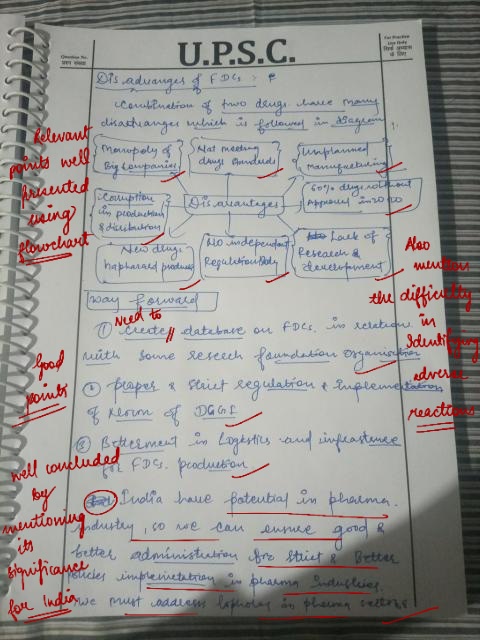 Question No.
प्रश्न संख्या
U.P.S.C.
For Practice
Use Only
सिर्फ अभ्यास
के लिए
Disadvanges of FDCs :
Combination of two drugs have many
disadvanges which is followed in diagram
Monopoly of
Big Companies
Not meeting
drugs standards
Unplanned
Manufacturing
Corruption
in production
& distribution
Disadvantages
60% drugs without
Approval in 20
New drugs
haphazard product
No independent
Regulation Body
Lack of
Research &
development
Relevant
points well
presented
using
flowchart
Also
mention
the difficulty
in
Identifying
adverse
reactions
Way forward
① Need to create database on FDCs. in relation
with some reseech foundation organisation
② proper & strict regulation & Implementation
of norm of
③ Betterment in Logistics and infrastence
for FDCs. production
Good
points
India have potential in pharma.
industry, so we can ensure good &
better administration for strict & Better
policies implemetation in pharma Industries.
we must address lopholes in pharma sectors
well concluded
by
mentioning
its
significance
for India